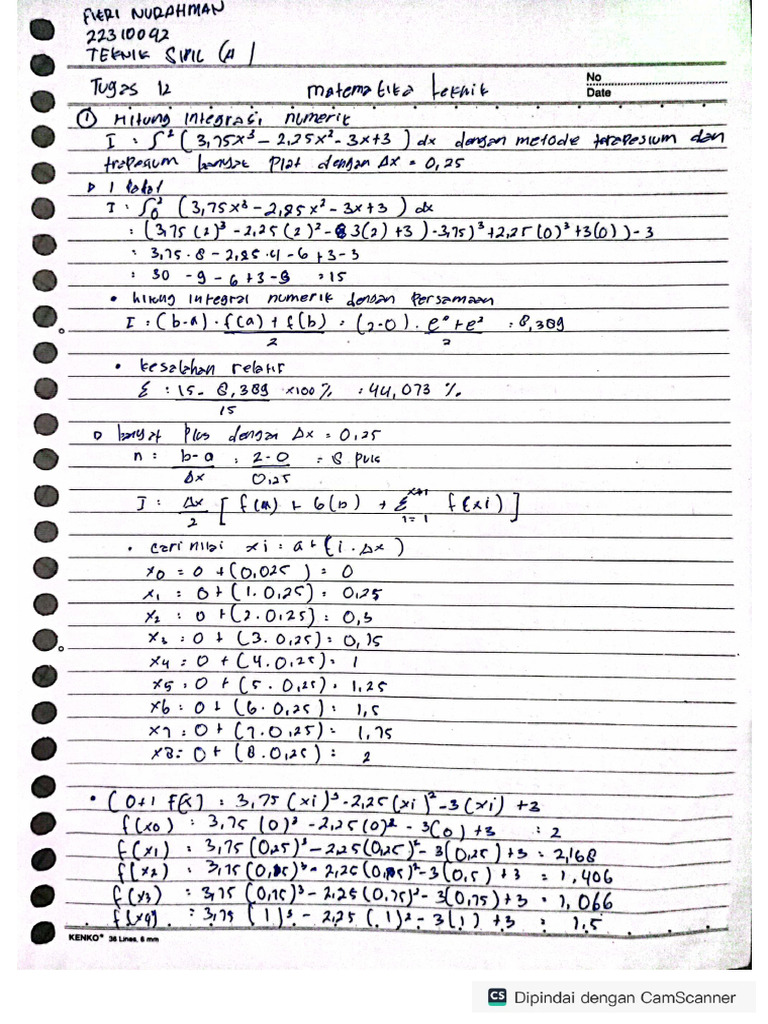 FIKRI NURAHMAN
22310092
TEKNIK SIPIL (A)
No
Date
Tugas 12 matematika teknik
① Hitung integrasi numerik
I : ∫² (3,75x³ - 2,25x² - 3x+3) dx dengan metode terapesium dan
trapesium banyak plat dengan Δx = 0,25
I : ∫₀² (3,75x³ - 2,25x² - 3x+3) dx
: (3,75 (2)³ - 2,25 (2)² - 3(2) +3) - 3,75)³ + 2,25 (0)³ + 3(0)) - 3
: 3,75 . 8 - 2,25 . 4 - 6 + 3 - 3
: 30 - 9 - 6 + 3 - 3 = 15
• hitung integral numerik dengan Persamaan
I : (b-a) . f(a) + f(b) / 2 : (2-0) . e⁰ + e² / 2 : 8,389
• kesalahan relatif
ε : 15 - 8,389 / 15 x100 % : 44,073 %
banyak Plus dengan Δx = 0,25
n : b-a / Δx : 2-0 / 0,25 = 8
I : Δx / 2 [ f(a) + f(b) + Σ i=1 f(xi) ]
• cari nilai xi : a + (i . Δx)
x₀ = 0 + (0,025 ) = 0
x₁ = 0 + (1. 0,25) = 0,25
x₂ : 0 + (2. 0,25) : 0,5
x₃ : 0 + (3. 0,25) : 0,75
x₄ : 0 + (4. 0,25) : 1
x₅ : 0 + (5. 0,25) : 1,25
x₆ : 0 + (6. 0,25) : 1,5
x₇ : 0 + (7. 0,25) : 1,75
x₈ : 0 + (8. 0,25) : 2
f(x) : 3,75 (xi)³ - 2,25 (xi)² - 3 (xi) + 3
f(x₀) : 3,75 (0)³ - 2,25 (0)² - 3(0) + 3 : 2
f(x₁) : 3,75 (0,25)³ - 2,25 (0,25)² - 3(0,25) + 3 = 2,168
f(x₂) : 3,75 (0,5)³ - 2,25 (0,5)² - 3(0,5) + 3 = 1,406
f(x₃) : 3,75 (0,75)³ - 2,25 (0,75)² - 3(0,75) + 3 = 1,066
f(x₄) : 3,75 (1)³ - 2,25 (1)² - 3(1) + 3 : 1,5
KENKO® 36 Lines, 8 mm
CS Dipindai dengan CamScanner